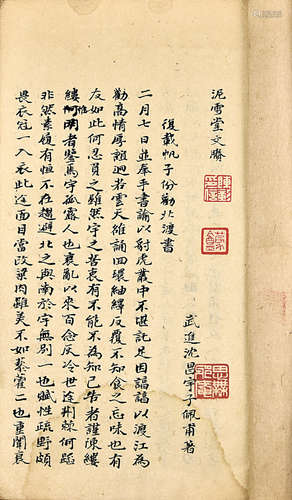 泥雪堂文賸
武進沈昌宇子佩甫著
復戴帆子份勸北渡書
二月七日並奉手書諭以射虎叢中不堪託足因諄諄以渡江為
勸高情厚誼迥若雲天雒誦四環紬繹反覆不知食之忘味也有
友如此何忍負之雖然宇之苦衷有不能不為知己告者謹陳縷
縷惟明者鑒焉宇孤露人也喪亂以來百念灰冷世途荆棘何蹈
非然素履有恒不在趨避北之與南於宇無别一也賦性疏野頗
畏衣冠一入衣此途面目當改粱肉雖美不如藜藿二也重闈衰